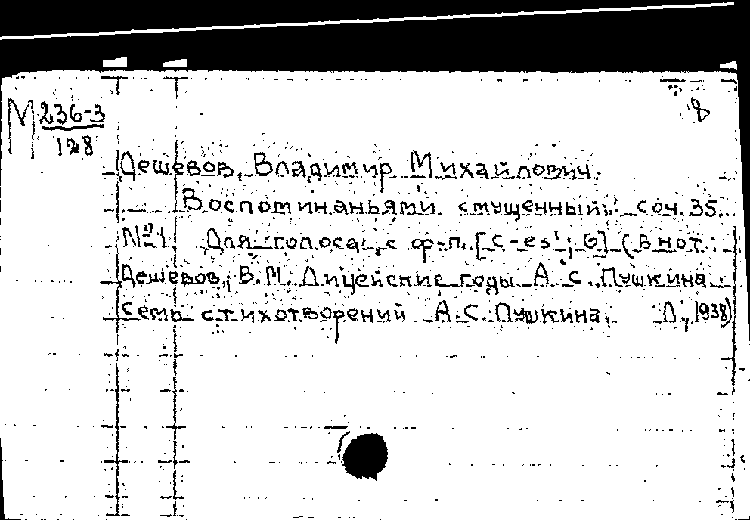 М 236-3
128
8
Дешевов, Владимир Михайлович.
Воспоминаньями смущенный: соч. 35.
№1. Для голоса с ф-п. [c-es¹; G] (В нот.:
Дешевов, В.М. Лицейские годы А.С. Пушкина.
Семь стихотворений А.С. Пушкина. Л., 1938)